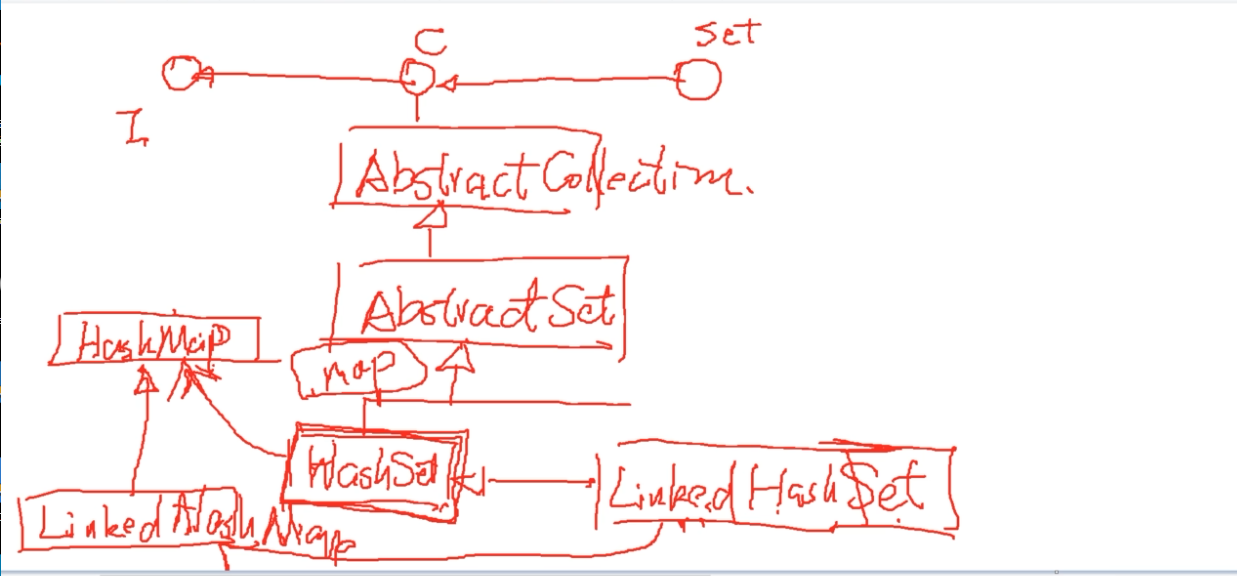 C
set
I
AbstractCollection.
AbstractSet
HashMap
map
HashSet
LinkedHashSet
LinkedHashMap